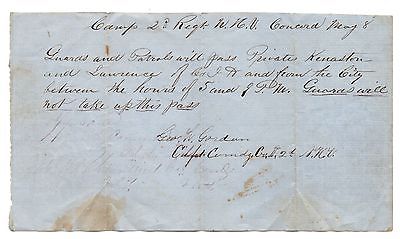 Camp 2d Regt N.H.V. Concord May 8
Guards and Patrols will pass Private Kenaston
and Lawrence of Co I to and from the City
between the hours of 5 and P.M. Guards will
not take up this pass
Geo. W. Gordon
Capt Comdg Co I, 2d N.H.V.